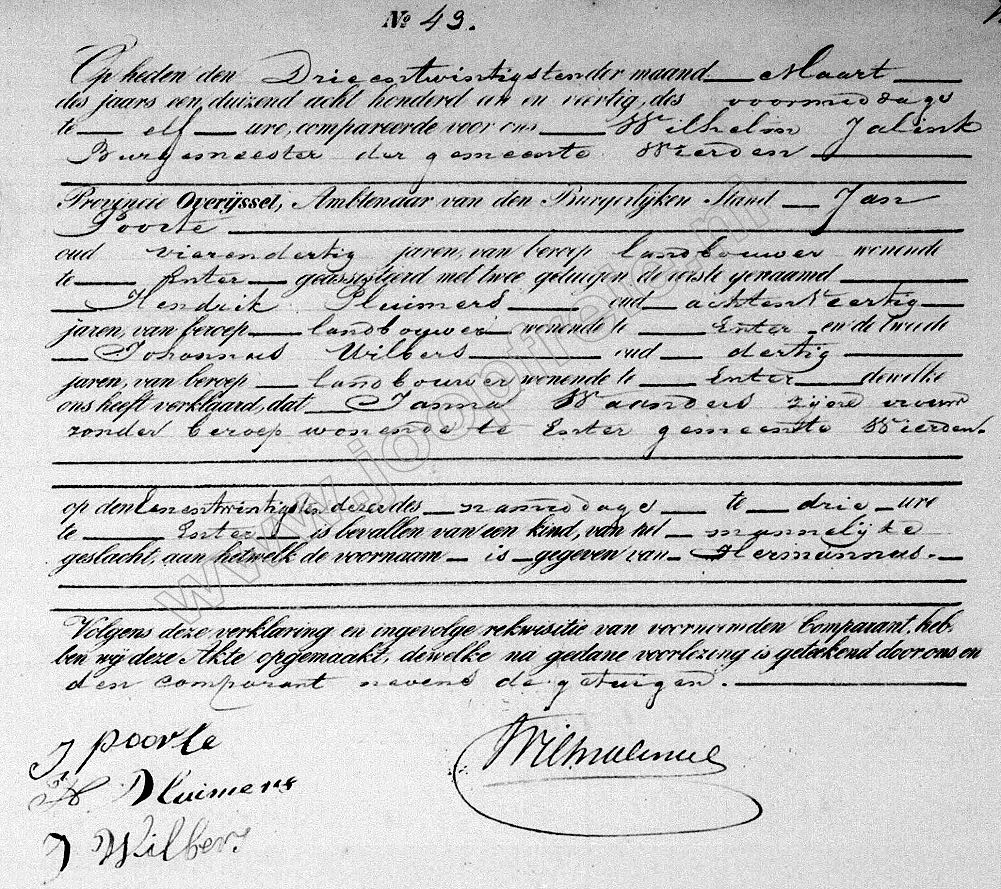 No 49.
Op heden den Drieentwintigsten der maand Maart
des jaars een duizend acht honderd un en viertig, des voormiddags
te elf ure, compareerde voor ons Wilhelm Jalink
Burgemeester der gemeente Wierden
Provincie Overijssel, Ambtenaar van den Burgerlijken Stand Jan
Poorte
oud vierendertig jaren, van beroep landbouwer wonende
te Enter geassisteerd met twee getuigen de eerste genaamd
Hendrik Pluimers oud achtenveertig
jaren, van beroep landbouwer wonende te Enter en de tweede
Johannus Wilbers oud dertig
jaren, van beroep landbouwer wonende te Enter dewelke
ons heeft verklaard, dat Janna Waanders zijne vrouw
zonder beroep wonende te Enter gemeente Wierden.
op den Eenentwintigsten dezer des namiddags te drie ure
te Enter is bevallen van een kind, van het mannelijke
geslacht, aan hetwelk de voornaam is gegeven van Hermannus.
Volgens deze verklaring en ingevolge rekwisitie van voornaamden Comparant, heb-
ben wij deze Akte opgemaakt, dewelke na gedane voorlezing is geteekend door ons en
den comparant nevens de getuigen.
J poorte
H Pluimers
J Wilbers
www.joopfrer.nl